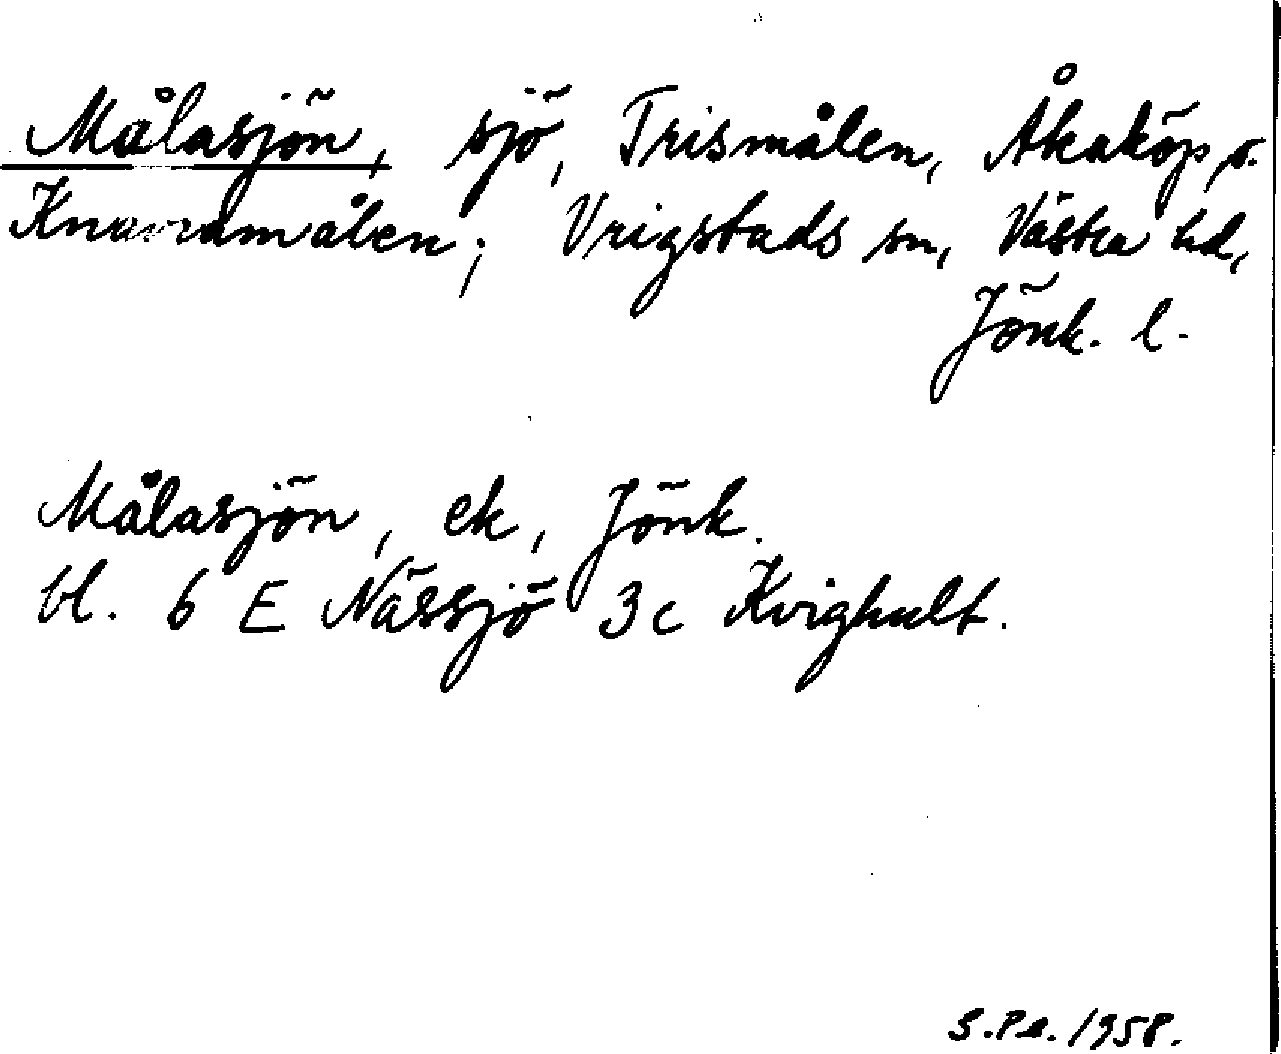 Målasjön, sjö, Trismålen, Åkaköp o.
Knarramålen; Vrigstads sn, Västra hd,
Jönk. l.
Målasjön, ek, Jönk.
bl. 6 E Nässjö 3c Kvighult.
S.Pe. 1958.